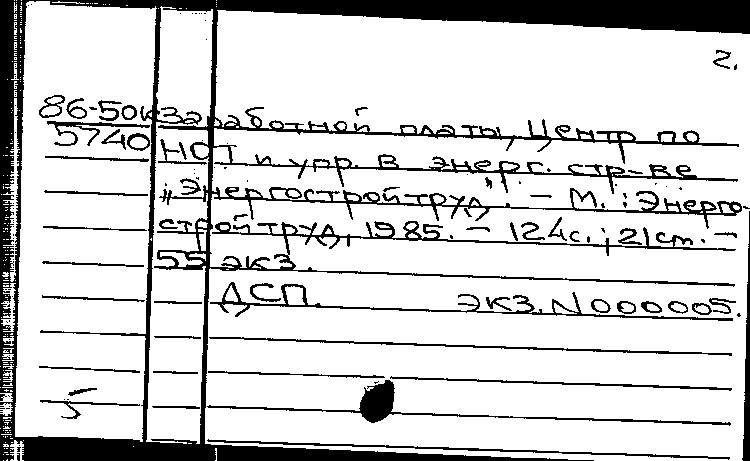 2.
86-50к Заработной платы, Центр по
5740 НОТ и упр. в энерг. стр-ве
„Энергостройтруд". – М.: Энерго-
стройтруд, 1985. – 124с.; 21см. –
55 экз.
ДСП. экз. N000005.
5